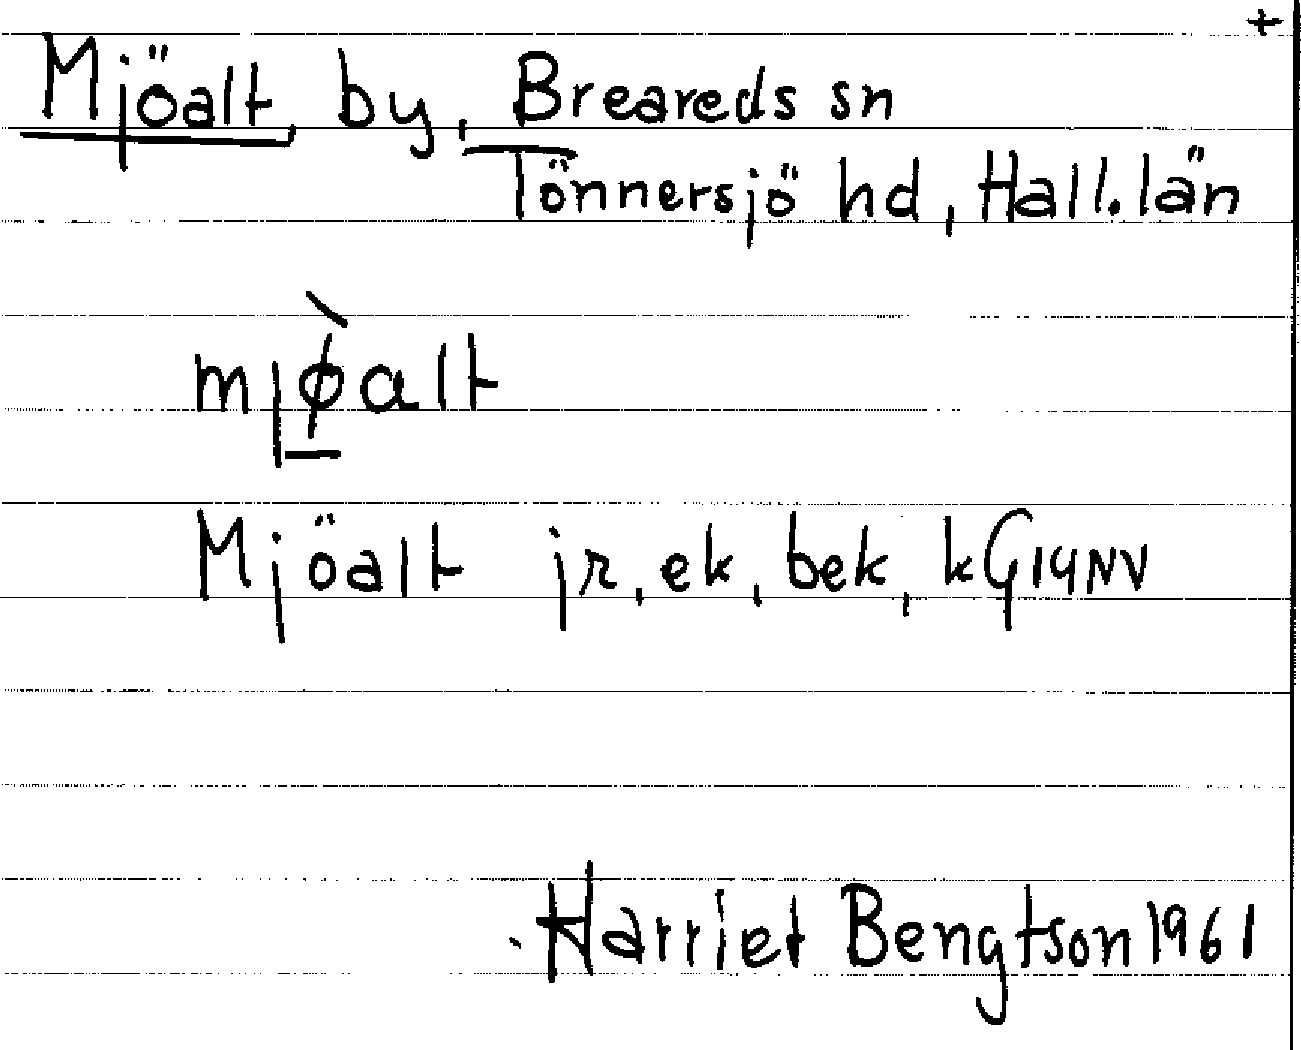 +
Mjöalt, by, Breareds sn
Tönnersjö hd, Hall. län
mjø̀alt
Mjöalt jr, ek, bek, kG14NV
Harriet Bengtson 1961